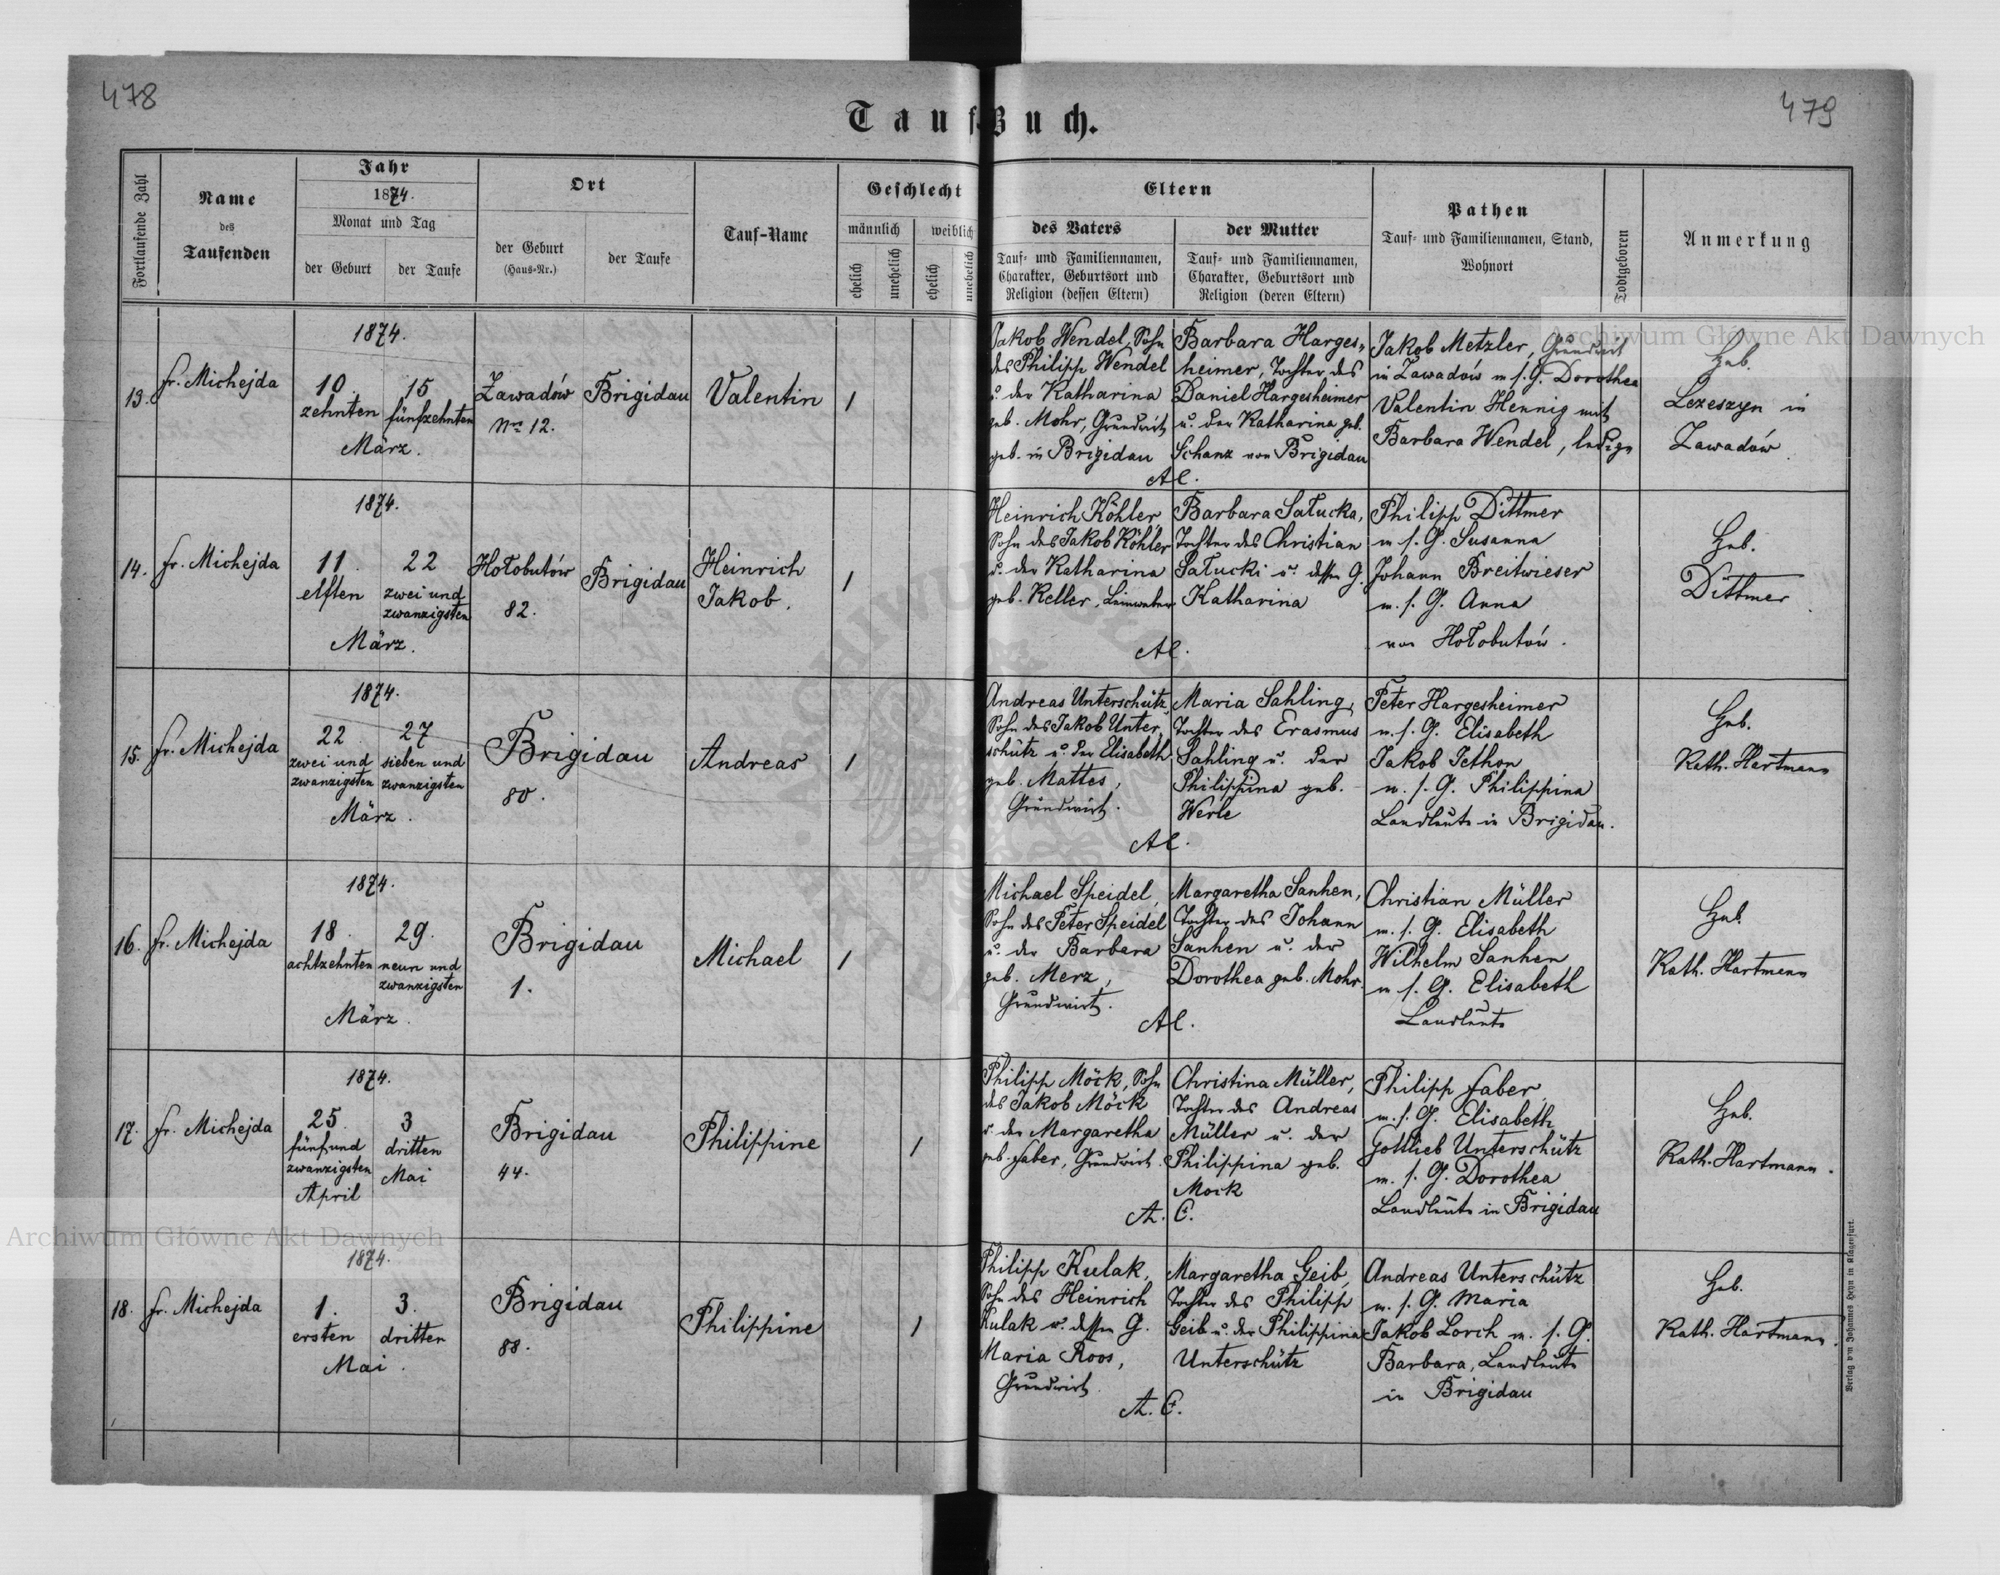 478
479
Tauf-Buch.
Fortlaufende Zahl
Name
des
Taufenden
Jahr
1874.
Monat und Tag
der Geburt
der Taufe
Ort
der Geburt
(Haus-Nr.)
der Taufe
Tauf-Name
Geschlecht
männlich
weiblich
ehelich
unehelich
ehelich
unehelich
Eltern
des Vaters
Tauf- und Familiennamen,
Charakter, Geburtsort und
Religion (dessen Eltern)
der Mutter
Tauf- und Familiennamen,
Charakter, Geburtsort und
Religion (deren Eltern)
Pathen
Tauf- und Familiennamen, Stand,
Wohnort
Todtgeboren
Anmerkung
13.
fr. Michejda
1874.
10.
zehnten
15
fünfzehnten
März.
Zawadów
Nro 12.
Brigidau
Valentin
1
Jakob Wendel, Sohn
des Philipp Wendel
u. der Katharina
geb. Mohr, Grundwirt
geb. in Brigidau
Barbara Harges-
heimer, Tochter des
Daniel Hargesheimer
u. der Katharina geb.
Schanz von Brigidau
AC.
Jakob Metzler, Grundwirt
in Zawadów m s. G. Dorothea
Valentin Hennig mit
Barbara Wendel, ledige
Heb.
Lezeszyn in
Zawadów.
14.
fr. Michejda
1874.
11.
elften
22
zwei und
zwanzigsten
März.
Hołobutów
82.
Brigidau
Heinrich
Jakob.
1
Heinrich Köhler,
Sohn des Jakob Köhler
u. der Katharina
geb. Keller, Leinweber
Barbara Sałucka,
Tochter des Christian
Sałucki u. dessen G.
Katharina
AC.
Philipp Dittmer
m. s. G. Susanna
Johann Breitwieser
m. s. G. Anna
von Hołobutów.
Heb.
Dittmer
15.
fr. Michejda
1874.
22.
zwei und
zwanzigsten
27
sieben und
zwanzigsten
März.
Brigidau
80.
Andreas
1
Andreas Unterschütz,
Sohn des Jakob Unter-
schütz u. der Elisabeth
geb. Mattes,
Grundwirt.
Maria Sahling,
Tochter des Erasmus
Sahling u. der
Philippina geb.
Werle
AC.
Peter Hargesheimer
m. s. G. Elisabeth
Jakob Jethon
m. s. G. Philippina
Landleute in Brigidau.
Heb.
Kath. Hartmann
16.
fr. Michejda
1874.
18.
achtzehnten
29.
neun und
zwanzigsten
März.
Brigidau
1.
Michael
1
Michael Speidel,
Sohn des Peter Speidel
u. der Barbara
geb. Merz,
Grundwirt.
Margaretha Sanhen,
Tochter des Johann
Sanhen u. der
Dorothea geb. Mohr.
AC.
Christian Müller
m. s. G. Elisabeth
Wilhelm Sanhen
m s. G. Elisabeth
Landleute
Heb.
Kath. Hartmann
17.
fr. Michejda
1874.
25.
fünf und
zwanzigsten
April
3
dritten
Mai
Brigidau
44.
Philippine
1
Philipp Möck, Sohn
des Jakob Möck
u. der Margaretha
geb. Faber, Grundwirt.
Christina Müller,
Tochter des Andreas
Müller u. der
Philippina geb.
Mock
A. C.
Philipp Faber
m. s. G. Elisabeth
Gottlieb Unterschütz
m. s. G. Dorothea
Landleute in Brigidau
Heb.
Kath. Hartmann.
18.
fr. Michejda
1874.
1.
ersten
3.
dritten
Mai.
Brigidau
88.
Philippine
1
Philipp Kulak,
Sohn des Heinrich
Kulak u. dessen G.
Maria Roos,
Grundwirt.
Margaretha Geib,
Tochter des Philipp
Geib u. der Philippina
Unterschütz
A. C.
Andreas Unterschütz
m. s. G. Maria
Jakob Lorch m. s. G.
Barbara, Landleute
in Brigidau
Heb.
Kath. Hartmann.
Verlag von Johannes Heyn in Klagenfurt.
Archiwum Główne Akt Dawnych
Archiwum Główne Akt Dawnych